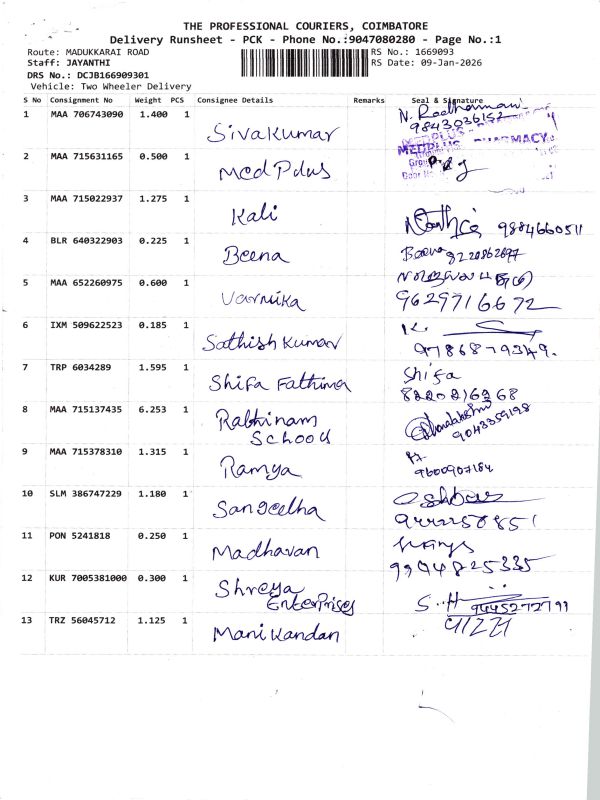 THE PROFESSIONAL COURIERS, COIMBATORE
Delivery Runsheet - PCK - Phone No.:9047080280 - Page No.:1
Route: MADUKKARAI ROAD RS No.: 1669093
Staff: JAYANTHI RS Date: 09-Jan-2026
DRS No.: DCJB166909301
Vehicle: Two Wheeler Delivery
S No Consignment No Weight PCS Consignee Details Remarks Seal & Signature
1 MAA 706743090 1.400 1 Sivakumar
9843036152
MEDPLUS PHARMACY
2 MAA 715631165 0.500 1 MedPlus
3 MAA 715022937 1.275 1 Kali 9884660511
4 BLR 640322903 0.225 1 Beena Beena 8220862897
5 MAA 652260975 0.600 1 Varnika
9629716672
6 IXM 509622523 0.185 1 Sathish Kumar K.
9786879349.
7 TRP 6034289 1.595 1 Shifa Fathima Shifa
8220216268
8 MAA 715137435 6.253 1 Rathinam
School 9043359198
9 MAA 715378310 1.315 1 Ramya
9600907184
10 SLM 386747229 1.180 1 Sangeetha
11 PON 5241818 0.250 1 Madhavan
9994825335
12 KUR 7005381000 0.300 1 Shreya
Enterprises S.H 9445272791
13 TRZ 56045712 1.125 1 Manikandan